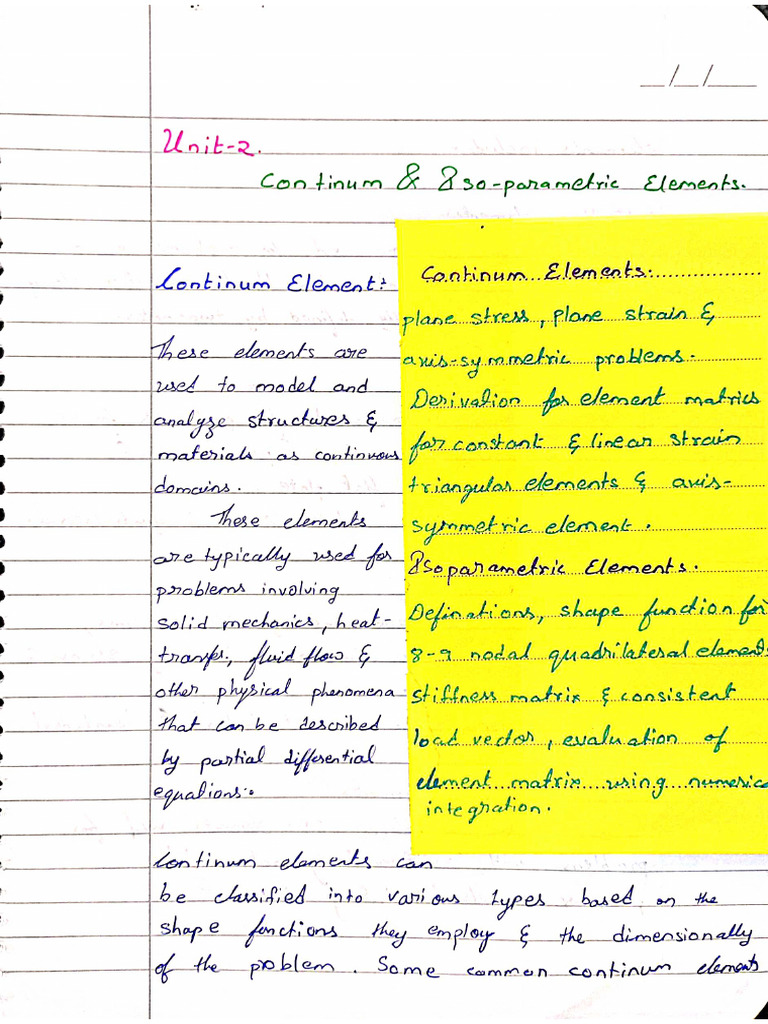 __/__/___
Unit-2.
Continum & Iso-parametric Elements.
Continum Element:
These elements are
used to model and
analyze structures &
materials as continuous
domains.
These elements
are typically used for
problems involving
solid mechanics, heat-
transfer, fluid flow &
other physical phenomena
that can be described
by partial differential
equations.
Continum Elements:
plane stress, plane strain &
axis-symmetric problems.
Derivation for element matrics
for constant & linear strain
triangular elements & axis-
symmetric element.
Isoparametric Elements.
Definations, shape function for
8-9 nodal quadrilateral element
stiffness matrix & consistent
load vector, evaluation of
element matrix using numerica
integration.
Continum elements can
be classified into various types based on the
shape functions they employ & the dimensionally
of the problem. Some common continum elements